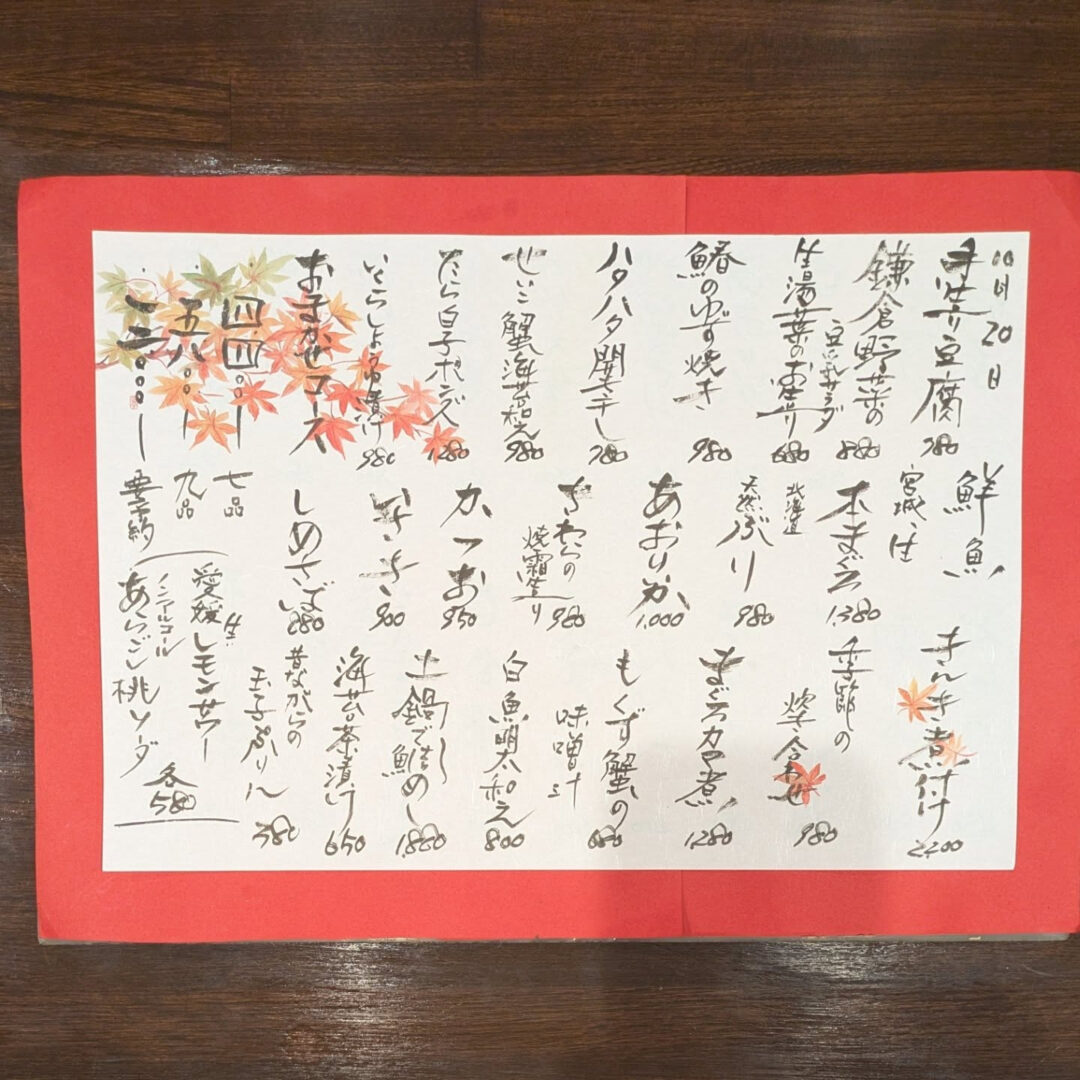 11月20日
手造り豆腐 780
鎌倉野菜の
豆乳サラダ 880
生湯葉のお造り 680
鰆のゆず焼き 980
ハタハタ開き干し 780
せいこ蟹海苔和え 980
たら白子ポンズ 1,280
いくらしょうゆ漬け 980
おまかせコース
四四〇〇ー 七品
五八〇〇ー 九品
一三〇〇〇ー 要予約
鮮魚
宮城・生
本まぐろ 1,380
北海道
天然ぶり 980
あおりいか 1,000
さわらの
焼霜造り 980
かつお 950
いさき 900
しめさば 880
きんき煮付け 2,200
季節の
炊き合わせ 980
まぐろカマ煮 1,280
もくず蟹の
味噌汁 680
白魚明太和え 800
土鍋で鯛めし 1,880
海苔茶漬け 650
昔ながらの
玉子ぷりん 380
愛媛生レモンサワー
ノンアルコール
あらごし桃ソーダ
各580